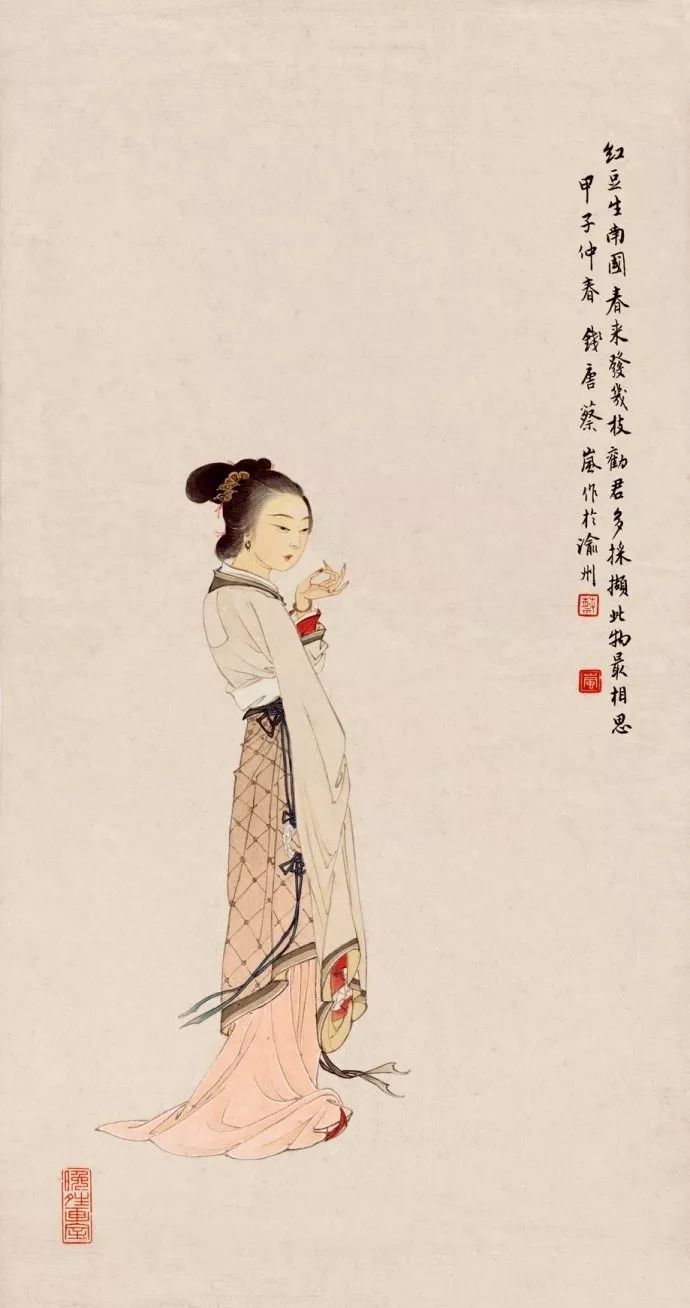 紅豆生南國春来發幾枝勸君多採擷此物最相思
甲子仲春 錢唐蔡嵐作於渝州
蔡
嵐